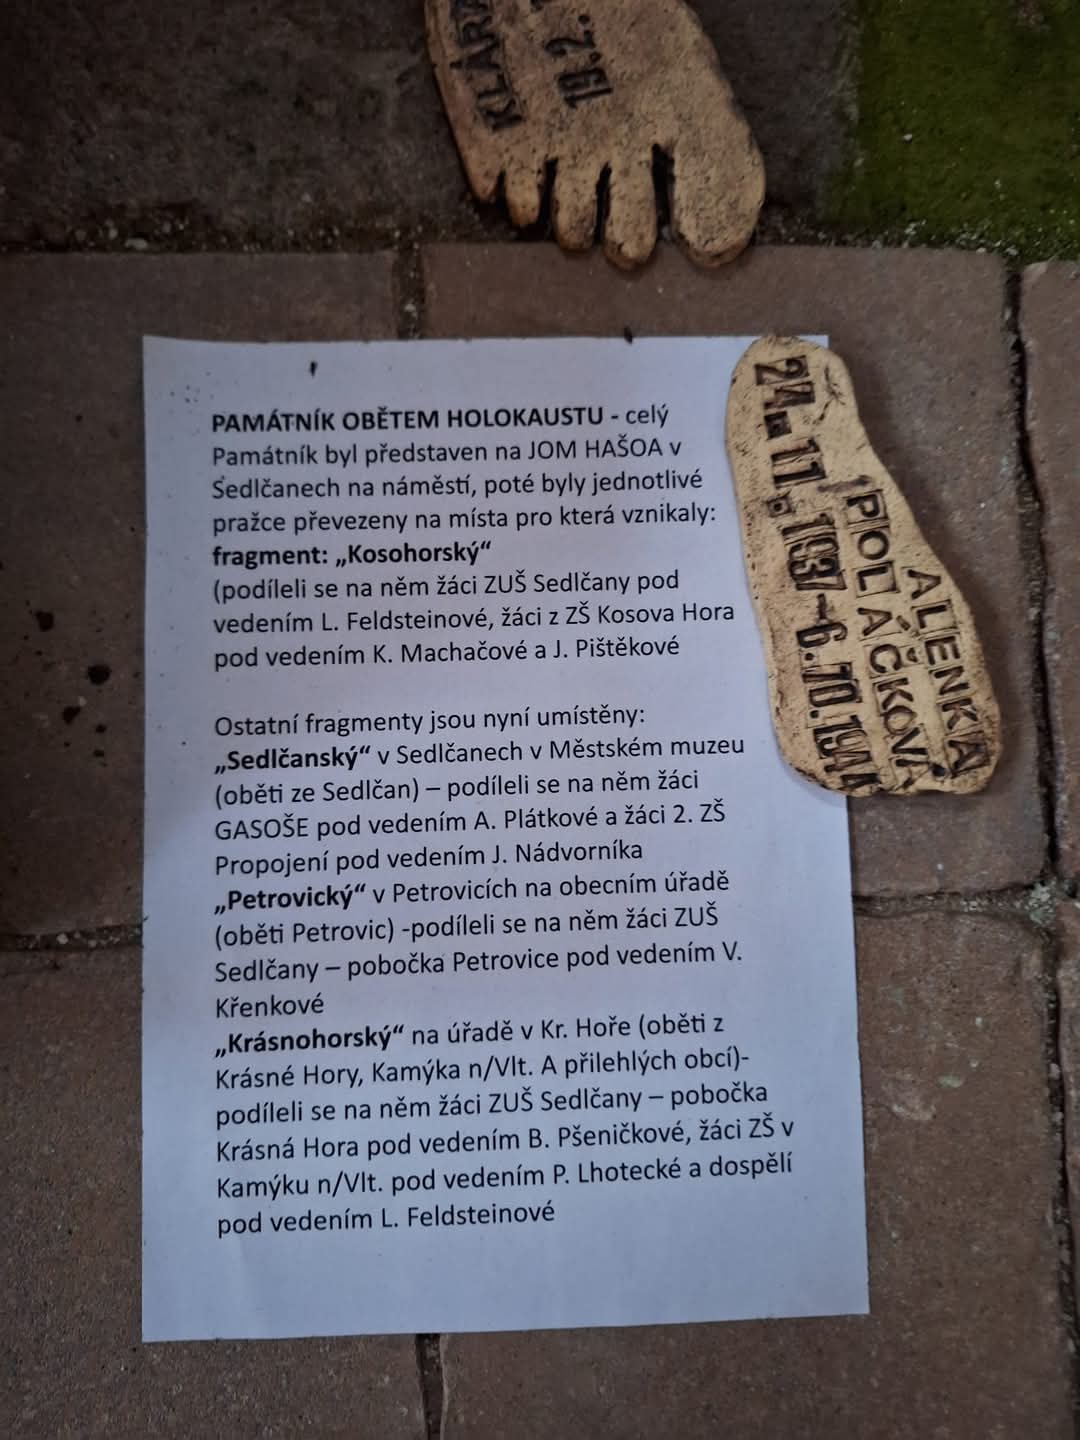 KLÁRA
19.2.
PAMÁTNÍK OBĚTEM HOLOKAUSTU - celý
Památník byl představen na JOM HAŠOA v
Sedlčanech na náměstí, poté byly jednotlivé
pražce převezeny na místa pro která vznikaly:
fragment: „Kosohorský“
(podíleli se na něm žáci ZUŠ Sedlčany pod
vedením L. Feldsteinové, žáci z ZŠ Kosova Hora
pod vedením K. Machačové a J. Pištěkové
Ostatní fragmenty jsou nyní umístěny:
„Sedlčanský“ v Sedlčanech v Městském muzeu
(oběti ze Sedlčan) – podíleli se na něm žáci
GASOŠE pod vedením A. Plátkové a žáci 2. ZŠ
Propojení pod vedením J. Nádvorníka
„Petrovický“ v Petrovicích na obecním úřadě
(oběti Petrovic) -podíleli se na něm žáci ZUŠ
Sedlčany – pobočka Petrovice pod vedením V.
Křenkové
„Krásnohorský“ na úřadě v Kr. Hoře (oběti z
Krásné Hory, Kamýka n/Vlt. A přilehlých obcí)-
podíleli se na něm žáci ZUŠ Sedlčany – pobočka
Krásná Hora pod vedením B. Pšeničkové, žáci ZŠ v
Kamýku n/Vlt. pod vedením P. Lhotecké a dospělí
pod vedením L. Feldsteinové
ALENKA
POLÁČKOVÁ
24.11.1937-6.10.1944